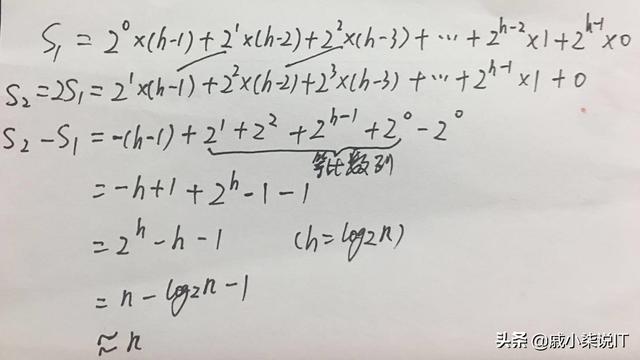 S₁ = 2⁰×(h-1) + 2¹×(h-2) + 2²×(h-3) + ⋯ + 2ʰ⁻²×1 + 2ʰ⁻¹×0
S₂=2S₁ = 2¹×(h-1) + 2²×(h-2) + 2³×(h-3) + ⋯ + 2ʰ⁻¹×1 + 0
S₂-S₁ = -(h-1) + 2¹ + 2² + 2ʰ⁻¹ + 2⁰ - 2⁰
等比数列
= -h+1 + 2ʰ-1-1
= 2ʰ-h-1 (h=log₂n)
= n-log₂n-1
≈ n
头条 @戚小柒说IT